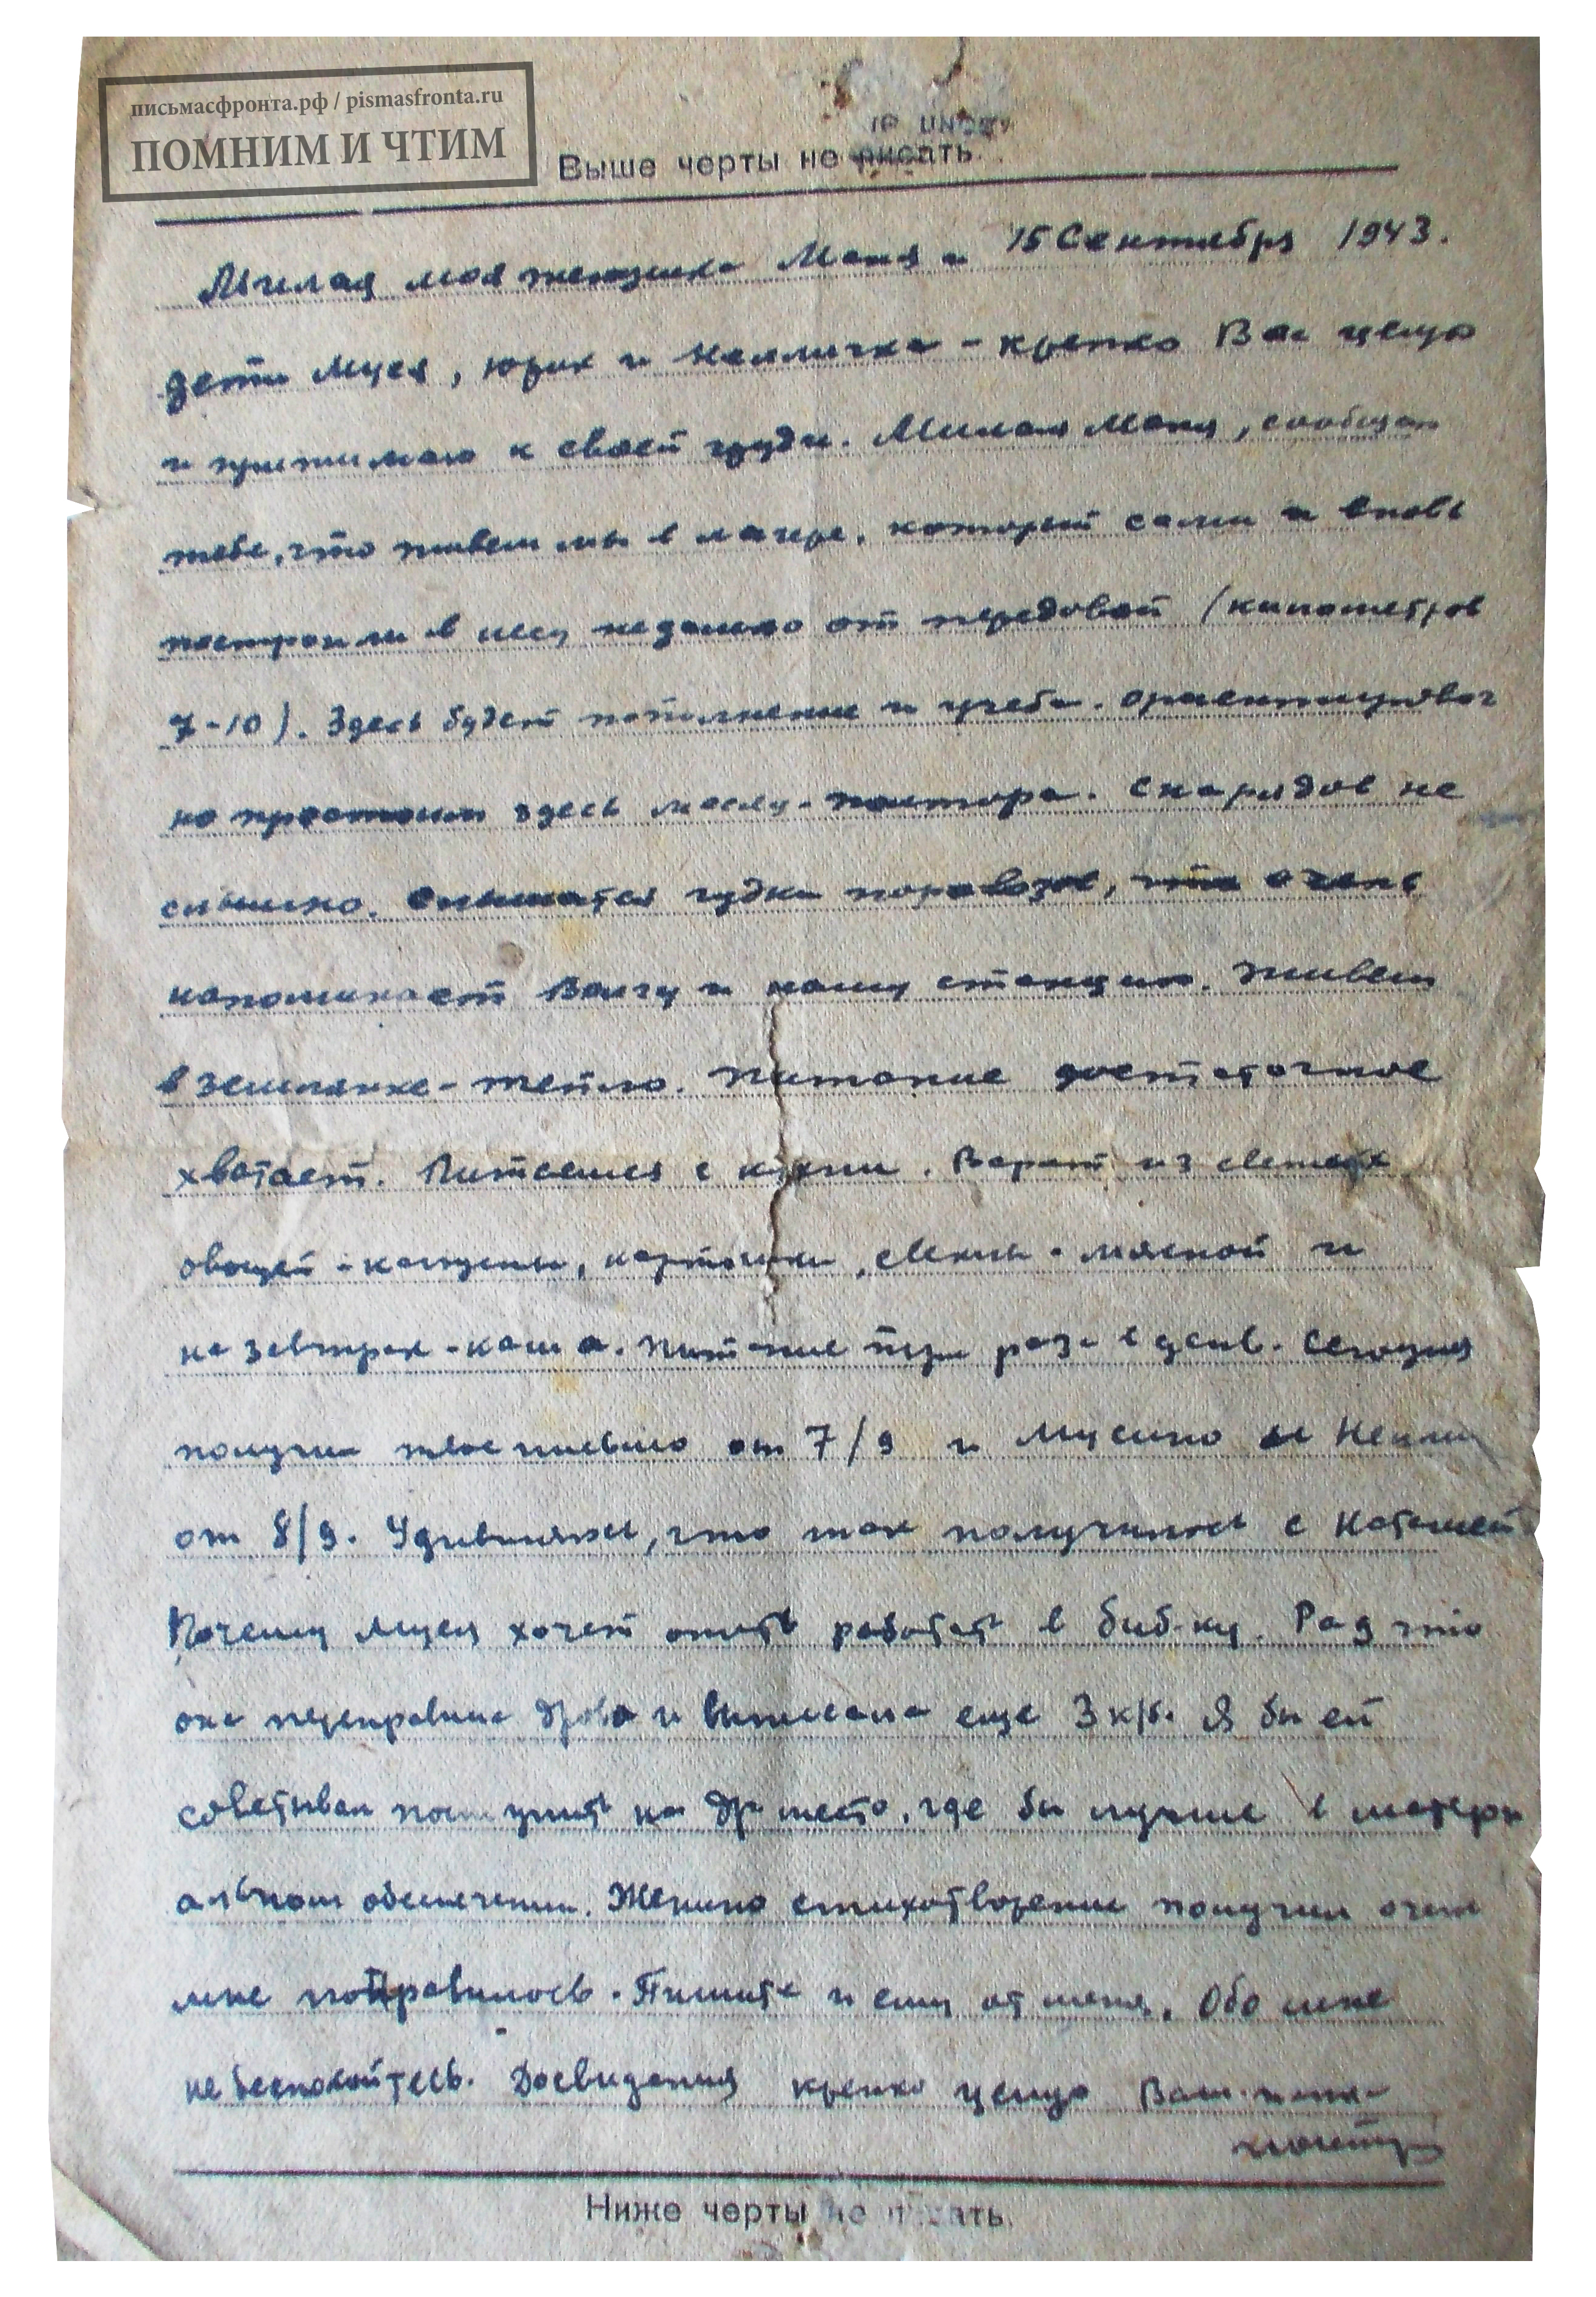 письмасфронта.рф / pismasfronta.ru
ПОМНИМ И ЧТИМ
Выше черты не писать.
15 Сентября 1943.
Милая моя женушка Маня и
дети Муся, Юрик и Нелличка - крепко Вас целую
и прижимаю к своей груди. Милая Маня, сообщаю
тебе, что живем мы в лагере, который сами и вновь
построили в лесу недалеко от передовой (километров
7-10). Здесь будет пополнение и учеба. Ориентировоч
но простоим здесь месяц-полтора. Снарядов не
слышно. Слышатся гудки паровозов, что очень
напоминает Волгу и нашу станцию. Живем
в землянке - тепло. Питание достаточное
хватает. Питаемся с кухни. Варят из свежих
овощей - капусты, картошки, свеклы - мясной и
на завтрак - каша. Питание три раза в день. Сегодня
получил твое письмо от 7/9 и Мусино и Нелли
от 8/9. Удивляюсь, что так получилось с Наташей
Почему Муся хочет опять работать в биб-ку. Рад что
она переправила дрова и выписала еще 3 к/б. Я бы ей
советывал поступить на др место, где бы лучше в матери
альном обеспечении. Женино стихотворение получил очень
мне понравилось. Пишите и ему от меня. Обо мне
не беспокойтесь. Досвидания крепко целую Ваш папка
Ниже черты не писать.